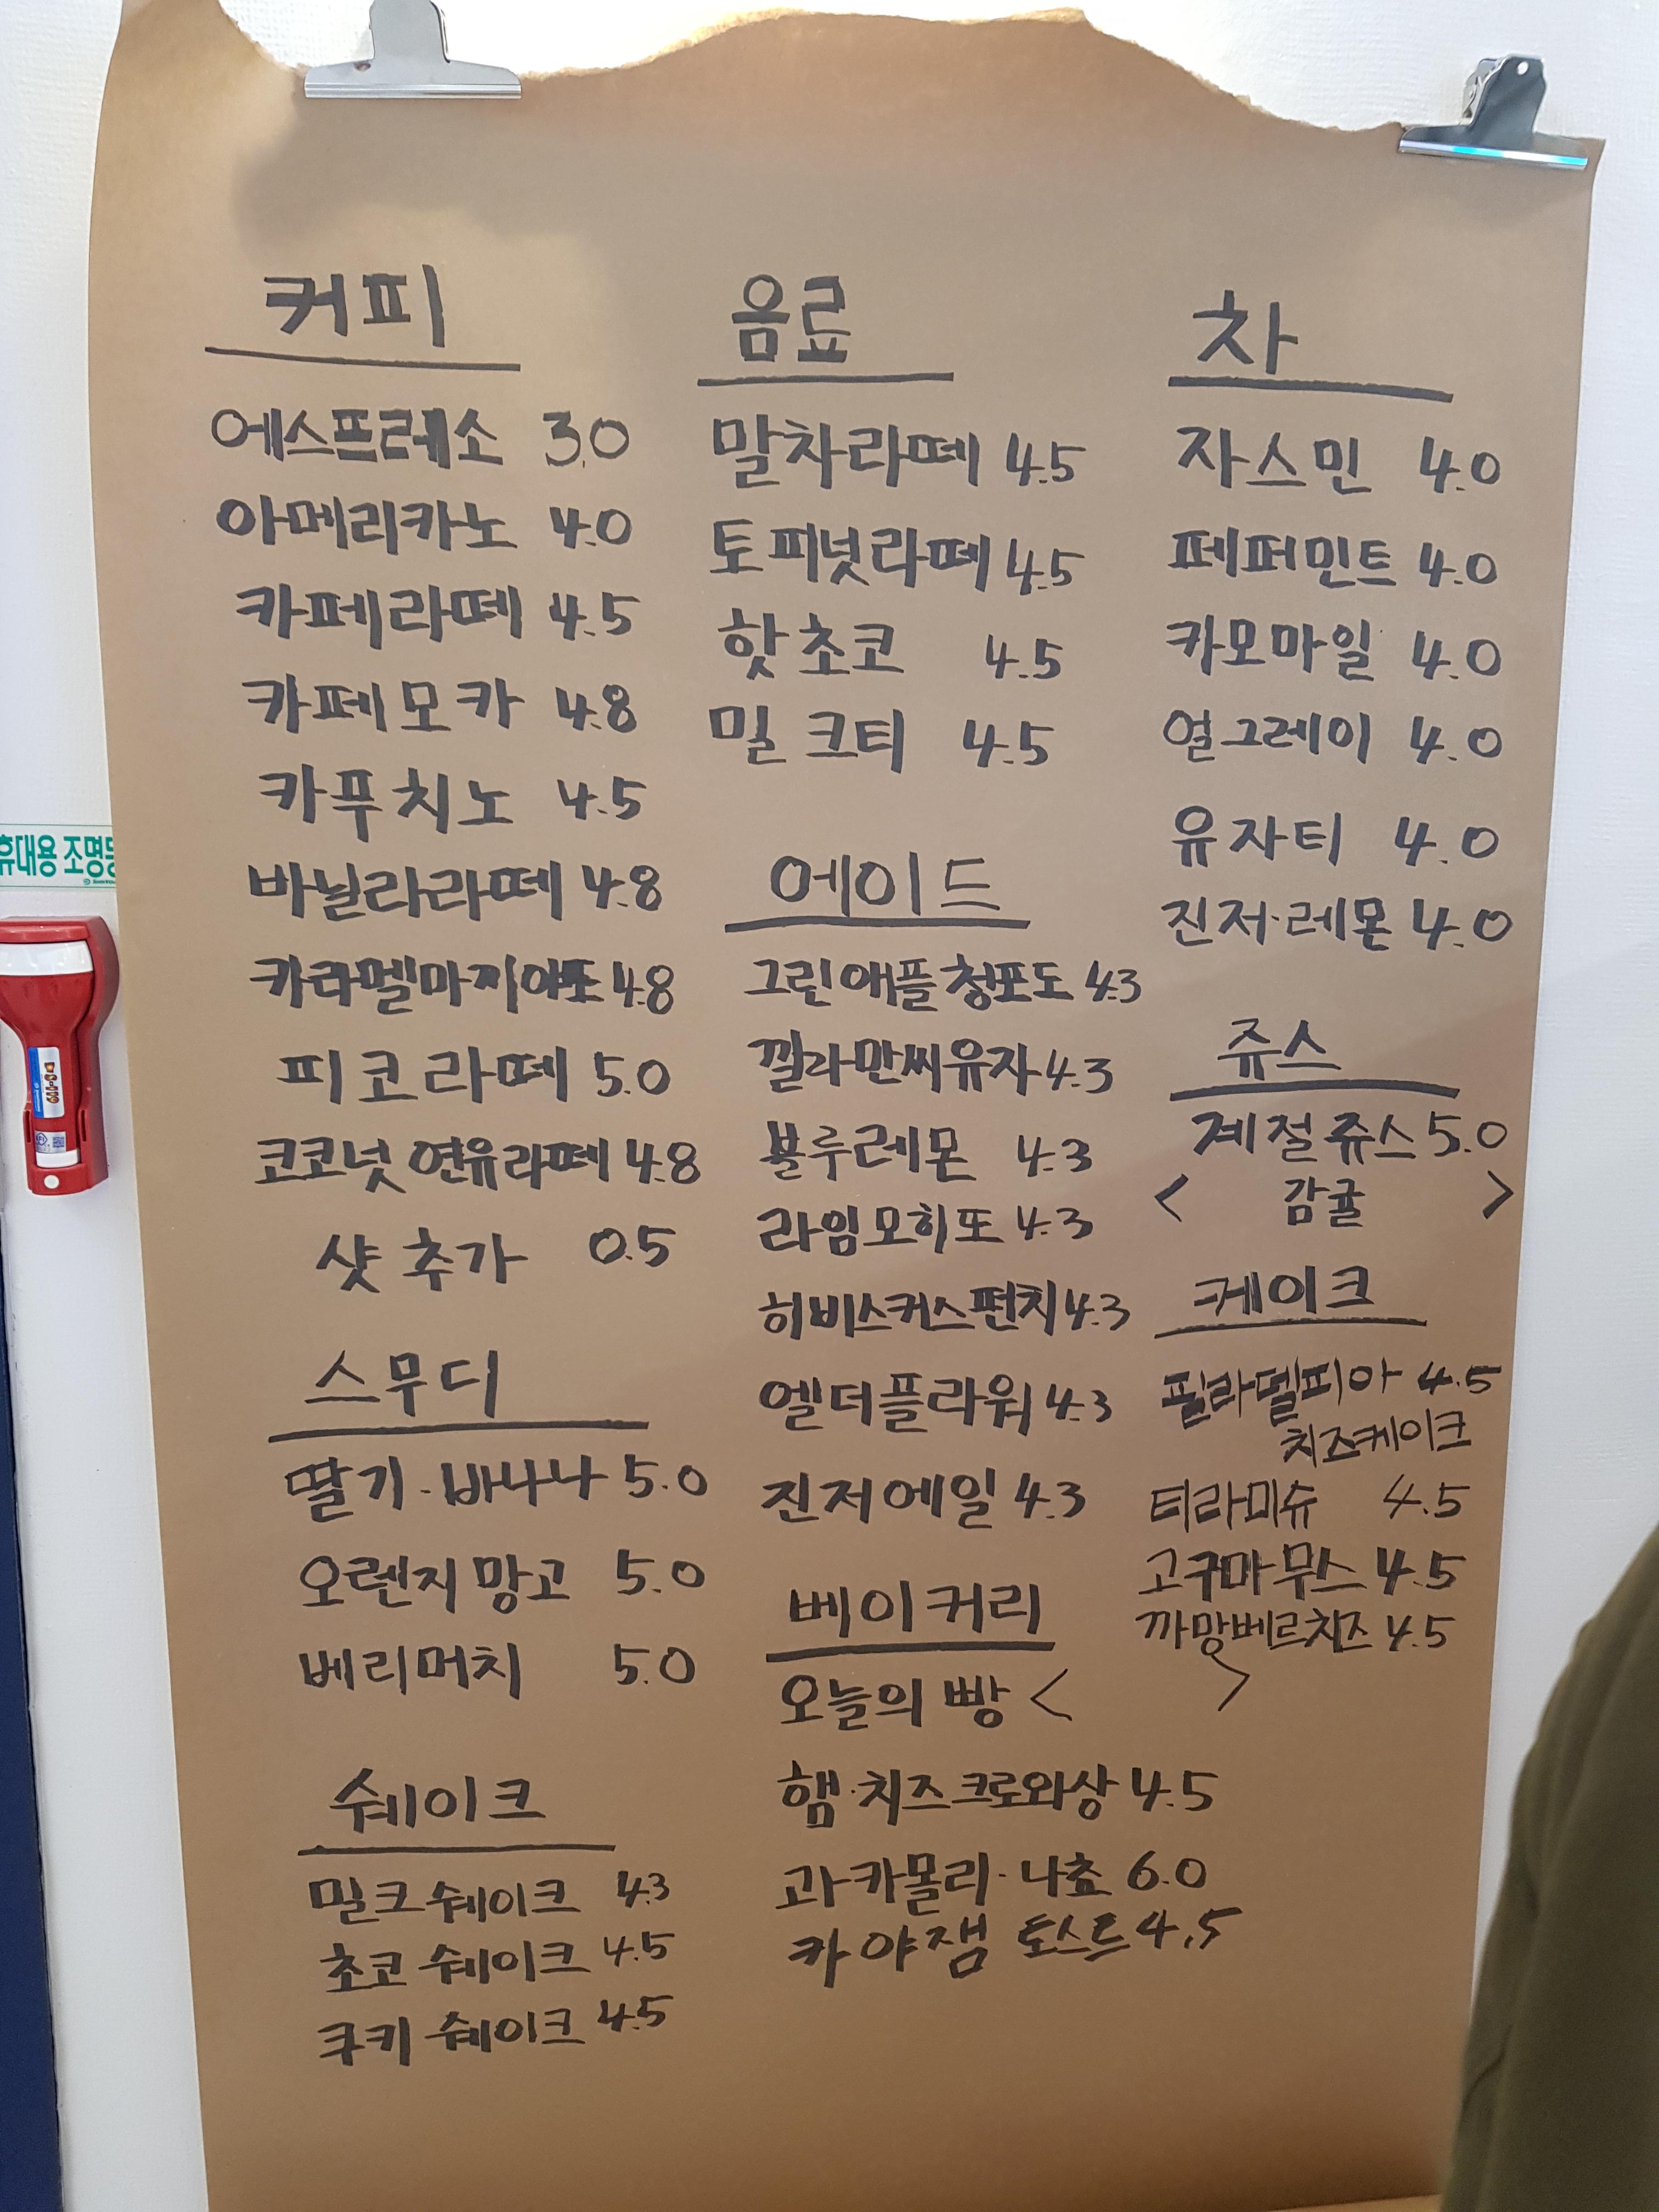 커피
에스프레소 3.0
아메리카노 4.0
카페라떼 4.5
카페모카 4.8
카푸치노 4.5
바닐라라떼 4.8
카라멜마끼아또 4.8
피코라떼 5.0
코코넛 연유라떼 4.8
샷 추가 0.5
스무디
딸기·바나나 5.0
오렌지망고 5.0
베리머치 5.0
쉐이크
밀크쉐이크 4.3
초코 쉐이크 4.5
쿠키 쉐이크 4.5
음료
말차라떼 4.5
토피넛라떼 4.5
핫초코 4.5
밀크티 4.5
에이드
그린애플청포도 4.3
깔라만씨유자 4.3
블루레몬 4.3
라임모히또 4.3
히비스커스펀치 4.3
엘더플라워 4.3
진저에일 4.3
베이커리
오늘의 빵 < >
햄·치즈크로와상 4.5
과카몰리·나쵸 6.0
카야잼 토스트 4.5
차
자스민 4.0
페퍼민트 4.0
카모마일 4.0
얼그레이 4.0
유자티 4.0
진저·레몬 4.0
쥬스
계절쥬스 5.0
< 감귤 >
케이크
필라델피아 4.5
치즈케이크
티라미슈 4.5
고구마무스 4.5
까망베르치즈 4.5
휴대용 조명등